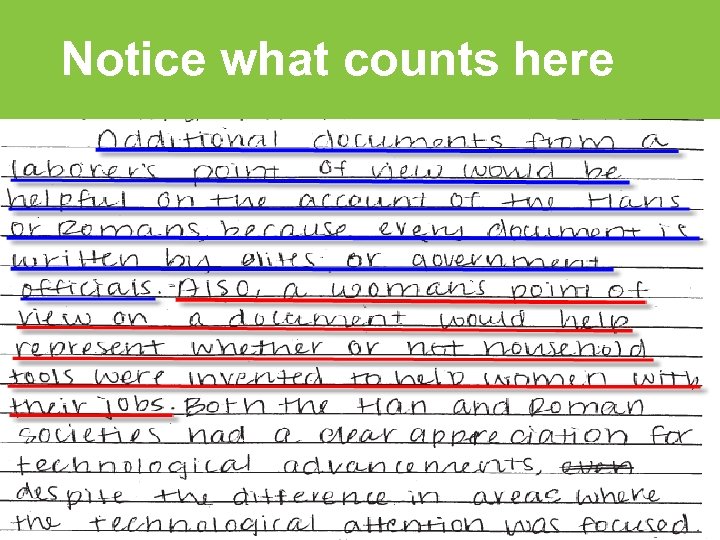 Notice what counts here
Additional documents from a
laborer's point of view would be
helpful on the account of the Hans
or Romans, because every document is
written by elites or government
officials. Also, a woman's point of
view on a document would help
represent whether or not household
tools were invented to help women with
their jobs. Both the Han and Roman
societies had a clear appreciation for
technological advancements, even
despite the difference in areas where
the technological attention was focused.